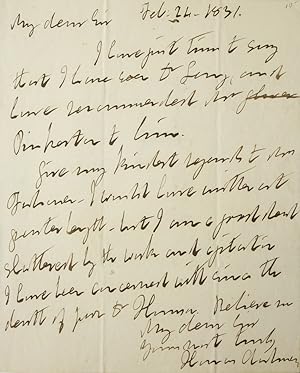 Feb. 24. 1831.
My dear Sir
I have just time to say
that I have seen Dr and
have recommended Mr
Pinkerton to him.
Give my kindest regards to Mrs
I would have written at
greater length, but I am a great deal
shattered by the work and agitation
I have been concerned with since the
death of poor Dr Believe me
My dear Sir
Yours most truly
Thomas Chalmers